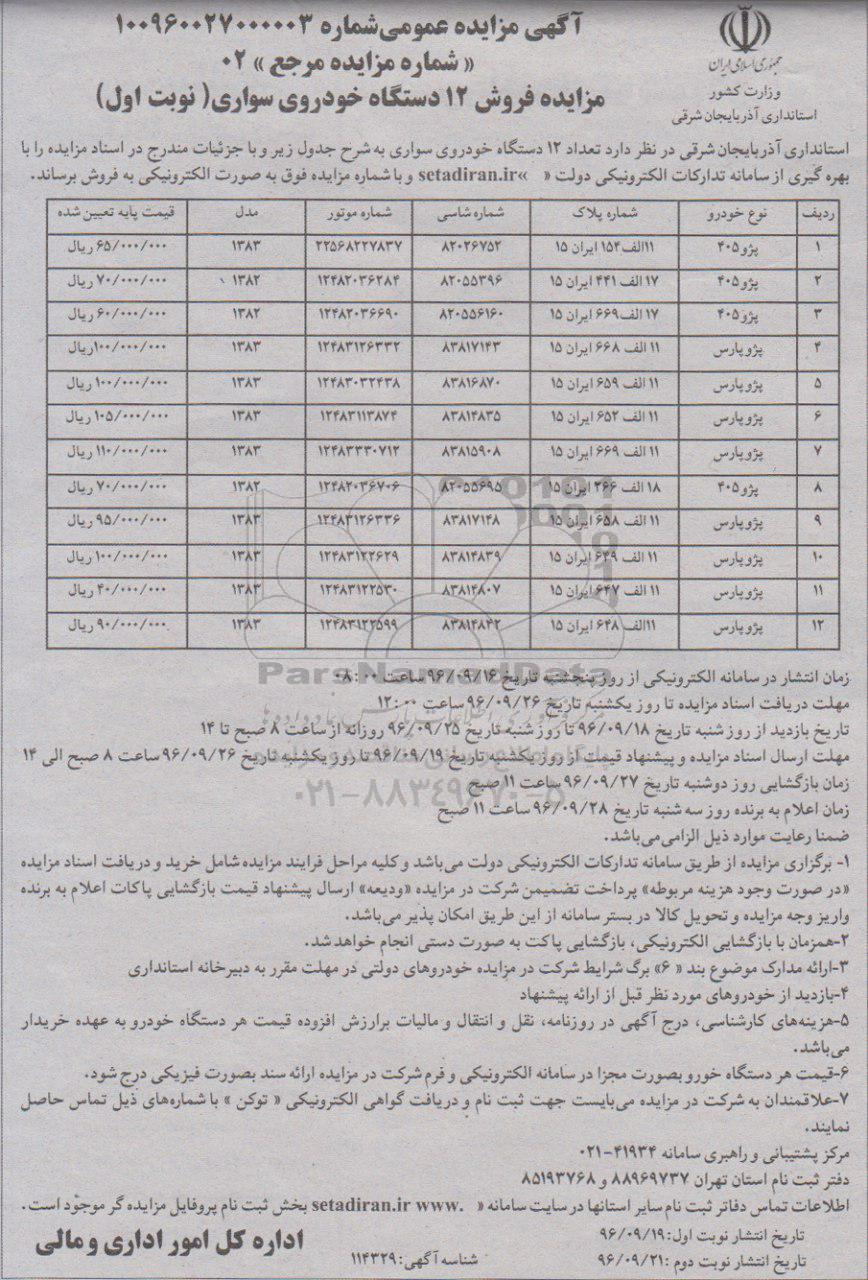 آگهی مزایده عمومی شماره ۱۰۰۹۶۰۰۲۷۰۰۰۰۰۳
« شماره مزایده مرجع » ۰۲
مزایده فروش ۱۲ دستگاه خودروی سواری( نوبت اول)
جمهوری اسلامی ایران
وزارت کشور
استانداری آذربایجان شرقی
استانداری آذربایجان شرقی در نظر دارد تعداد ۱۲ دستگاه خودروی سواری به شرح جدول زیر و با جزئیات مندرج در اسناد مزایده را با
بهره گیری از سامانه تدارکات الکترونیکی دولت « setadiran.ir» و با شماره مزایده فوق به صورت الکترونیکی به فروش برساند.
ردیف نوع خودرو شماره پلاک شماره شاسی شماره موتور مدل قیمت پایه تعیین شده
۱ پژو ۴۰۵ ۱۱الف۱۵۴ ایران ۱۵ ۸۲۰۲۶۷۵۲ ۲۲۵۶۸۲۲۷۸۳۷ ۱۳۸۳ ۶۵/۰۰۰/۰۰۰ ریال
۲ پژو ۴۰۵ ۱۷ الف ۴۴۱ ایران ۱۵ ۸۲۰۵۵۳۹۶ ۱۲۴۸۲۰۳۶۲۸۴ ۱۳۸۲ ۷۰/۰۰۰/۰۰۰ ریال
۳ پژو ۴۰۵ ۱۷ الف۶۶۹ ایران ۱۵ ۸۲۰۵۵۶۱۶۰ ۱۲۴۸۲۰۳۶۶۹۰ ۱۳۸۲ ۶۰/۰۰۰/۰۰۰ ریال
۴ پژو پارس ۱۱ الف ۶۶۸ ایران ۱۵ ۸۳۸۱۷۱۴۳ ۱۲۴۸۳۱۲۶۳۳۲ ۱۳۸۳ ۱۰۰/۰۰۰/۰۰۰ریال
۵ پژو پارس ۱۱ الف ۶۵۹ ایران ۱۵ ۸۳۸۱۶۸۷۰ ۱۲۴۸۳۰۳۲۴۳۸ ۱۳۸۳ ۱۰۰/۰۰۰/۰۰۰ ریال
۶ پژو پارس ۱۱ الف ۶۵۲ ایران ۱۵ ۸۳۸۱۴۸۳۵ ۱۲۴۸۳۱۱۳۸۷۴ ۱۳۸۳ ۱۰۵/۰۰۰/۰۰۰ ریال
۷ پژو پارس ۱۱ الف ۶۶۹ ایران ۱۵ ۸۳۸۱۵۹۰۸ ۱۲۴۸۳۳۳۰۷۱۲ ۱۳۸۳ ۱۱۰/۰۰۰/۰۰۰ ریال
۸ پژو ۴۰۵ ۱۸ الف ۳۶۶ ایران ۱۵ ۸۲۰۵۵۶۹۵ ۱۲۴۸۲۰۳۶۷۰۶ ۱۳۸۲ ۷۰/۰۰۰/۰۰۰ ریال
۹ پژو پارس ۱۱ الف ۶۵۸ ایران ۱۵ ۸۳۸۱۷۱۴۸ ۱۲۴۸۳۱۲۶۳۳۶ ۱۳۸۳ ۹۵/۰۰۰/۰۰۰ ریال
۱۰ پژو پارس ۱۱ الف ۶۴۹ ایران ۱۵ ۸۳۸۱۴۸۳۹ ۱۲۴۸۳۱۲۲۶۲۹ ۱۳۸۳ ۱۰۰/۰۰۰/۰۰۰ ریال
۱۱ پژو پارس ۱۱ الف ۶۴۷ ایران ۱۵ ۸۳۸۱۴۸۰۷ ۱۲۴۸۳۱۲۲۵۳۰ ۱۳۸۳ ۴۰/۰۰۰/۰۰۰ ریال
۱۲ پژو پارس ۱۱الف ۶۴۸ ایران ۱۵ ۸۳۸۱۴۸۴۲ ۱۲۴۸۳۱۲۲۵۹۹ ۱۳۸۳ ۹۰/۰۰۰/۰۰۰ ریال
ParsNamadData
زمان انتشار در سامانه الکترونیکی از روز پنجشنبه تاریخ ۹۶/۰۹/۱۶ ساعت ۰۸:۰۰
مهلت دریافت اسناد مزایده تا روز یکشنبه تاریخ ۹۶/۰۹/۲۶ ساعت ۱۲:۰۰
تاریخ بازدید از روز شنبه تاریخ ۹۶/۰۹/۱۸ تا روز شنبه تاریخ ۹۶/۰۹/۲۵ روزانه از ساعت ۸ صبح تا ۱۴
مهلت ارسال اسناد مزایده و پیشنهاد قیمت از روز یکشنبه تاریخ ۹۶/۰۹/۱۹ تا روز یکشنبه تاریخ ۹۶/۰۹/۲۶ ساعت ۸ صبح الی ۱۴
زمان بازگشایی روز دوشنبه تاریخ ۹۶/۰۹/۲۷ ساعت ۱۱ صبح
۰۲۱-۸۸۳۴۹۶۷۰-۵
زمان اعلام به برنده روز سه شنبه تاریخ ۹۶/۰۹/۲۸ ساعت ۱۱ صبح
ضمنا رعایت موارد ذیل الزامی می‌باشد.
۱- برگزاری مزایده از طریق سامانه تدارکات الکترونیکی دولت می‌باشد و کلیه مراحل فرایند مزایده شامل خرید و دریافت اسناد مزایده
«در صورت وجود هزینه مربوطه» پرداخت تضمیمن شرکت در مزایده «ودیعه» ارسال پیشنهاد قیمت بازگشایی پاکات اعلام به برنده
واریز وجه مزایده و تحویل کالا در بستر سامانه از این طریق امکان پذیر می‌باشد.
۲-همزمان با بازگشایی الکترونیکی، بازگشایی پاکت به صورت دستی انجام خواهد شد.
۳-ارائه مدارک موضوع بند « ۶» برگ شرایط شرکت در مزایده خودروهای دولتی در مهلت مقرر به دبیرخانه استانداری
۴-بازدید از خودروهای مورد نظر قبل از ارائه پیشنهاد
۵-هزینه‌های کارشناسی، درج آگهی در روزنامه، نقل و انتقال و مالیات برارزش افزوده قیمت هر دستگاه خودرو به عهده خریدار
می‌باشد.
۶-قیمت هر دستگاه خورو بصورت مجزا در سامانه الکترونیکی و فرم شرکت در مزایده ارائه سند بصورت فیزیکی درج شود.
۷-علاقمندان به شرکت در مزایده می‌بایست جهت ثبت نام و دریافت گواهی الکترونیکی « توکن » با شماره‌های ذیل تماس حاصل
نمایند.
مرکز پشتیبانی و راهبری سامانه ۴۱۹۳۴-۰۲۱
دفتر ثبت نام استان تهران ۸۸۹۶۹۷۳۷ و ۸۵۱۹۳۷۶۸
اطلاعات تماس دفاتر ثبت نام سایر استانها در سایت سامانه « setadiran.ir www. بخش ثبت نام پروفایل مزایده گر موجود است.
تاریخ انتشار نوبت اول: ۹۶/۰۹/۱۹
تاریخ انتشار نوبت دوم : ۹۶/۰۹/۲۱
شناسه آگهی: ۱۱۴۳۲۹
اداره کل امور اداری و مالی